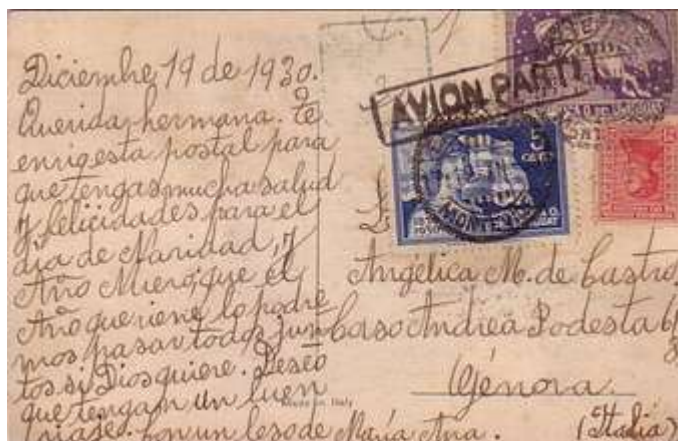 Diciembre, 19 de 1930.
Querida hermana. Te
envio esta postal para
que tengas mucha salud
y felicidades para el
dia de Navidad, y
Año Nuevo, que el
Año que viene lo podre
mos pasar todos jun
tos si Dios quiere. Deseo
que tengan un buen
Con un beso de María Ana.
AVION PARTI
5
MONTEVIDEO
Angélica M. de Castro.
Corso Andrea Podesta 6
Génova.
(Italia)
Made in Italy